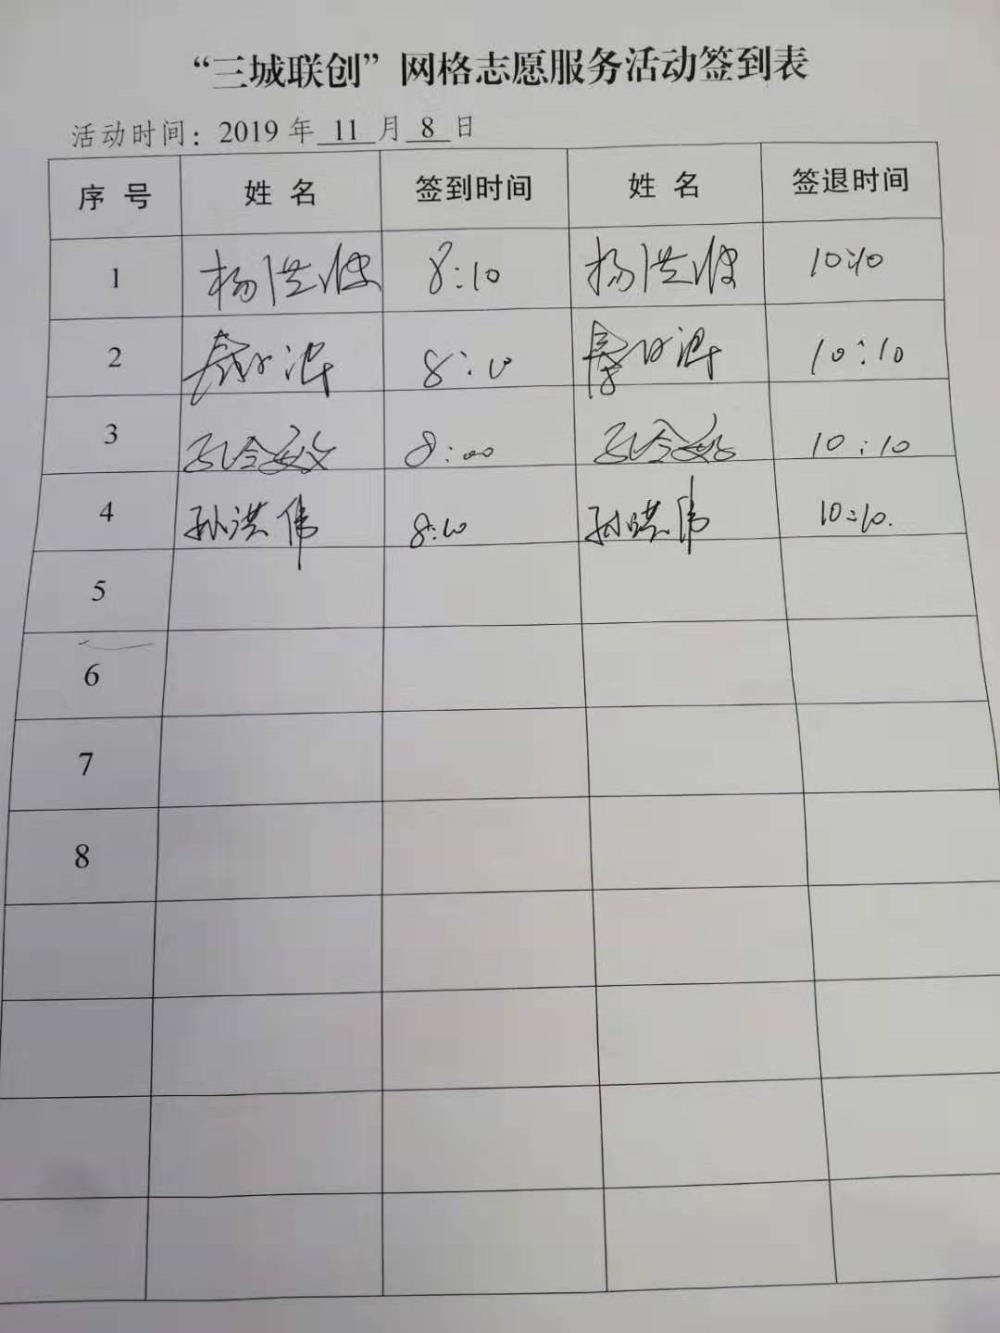 “三城联创”网格志愿服务活动签到表
活动时间：2019 年 11 月 8 日
序 号 姓 名 签到时间 姓 名 签退时间
1 杨洪波 8:10 杨洪波 10:10
2 8:10 10:10
3 孔令敏 8:00 孔令敏 10:10
4 孙洪伟 8:10 孙洪伟 10:10.
5
6
7
8